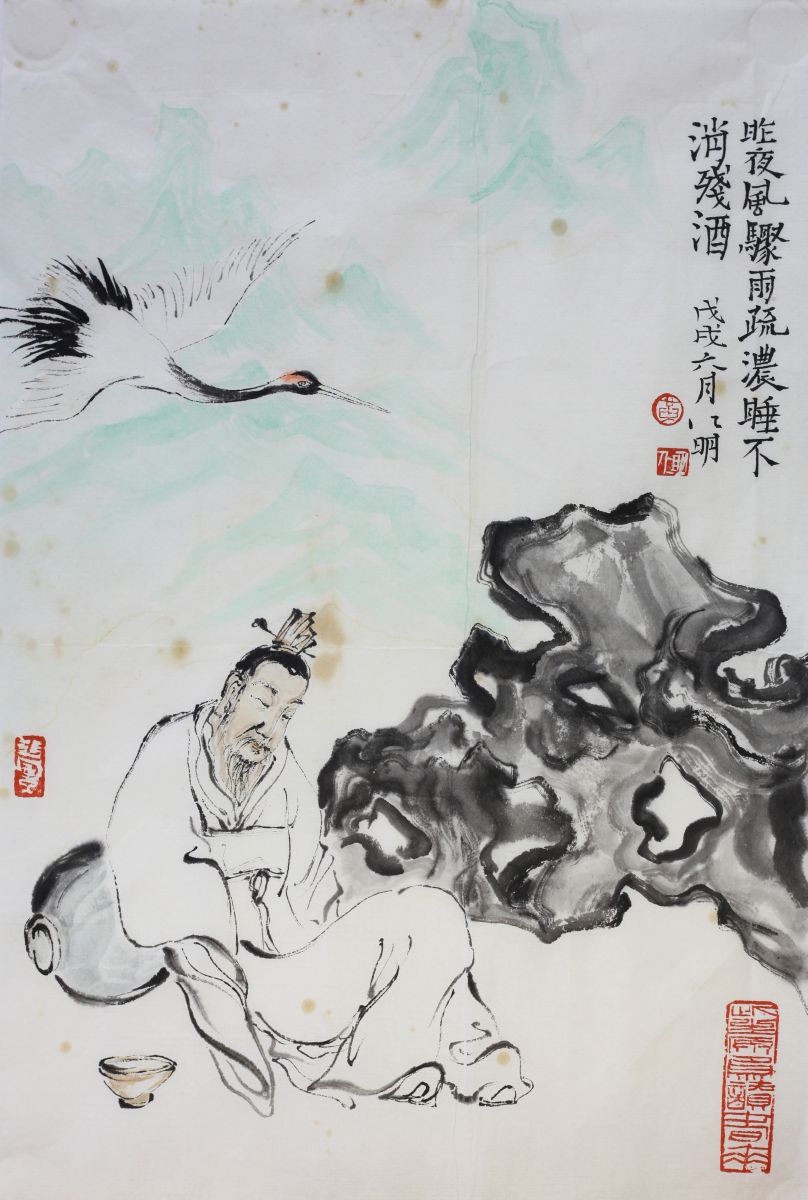 昨夜風驟雨疏濃睡不
消殘酒
戊戌六月 明